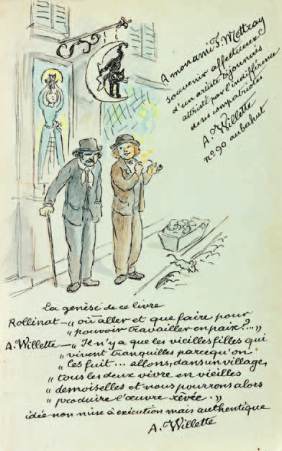 A mon ami J. Mettray
souvenir affectueux
d'un artiste dijonnais
attristé par l'indifférence
de ses compatriotes
A. Willette
n° 90 au bahut
La genèse de ce livre
Rollinat — "où aller et que faire pour
" pouvoir travailler en paix?.. "
A. Willette — "Il n'y a que les vieilles filles qui
" vivent tranquilles parcequ'on
" les fuit... allons, dans un village,
" tous les deux vivre en vieilles
" demoiselles et nous pourrons alors
" produire l'œuvre rêvée. "
idée non mise à exécution mais authentique
A. Willette